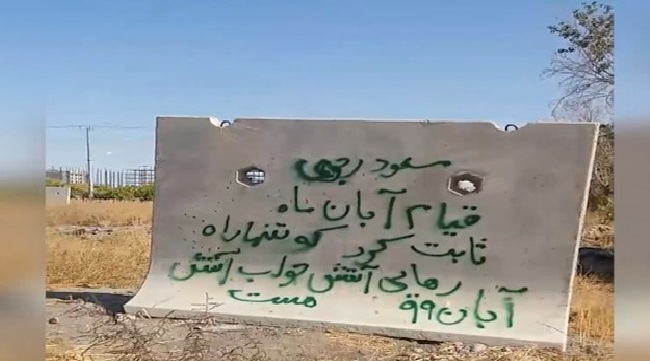 مسعود رجوی
قیام آبان ماه
ثابت کرد که تنها راه
رهایی آتش جواب آتش
آبان ۹۹ مست